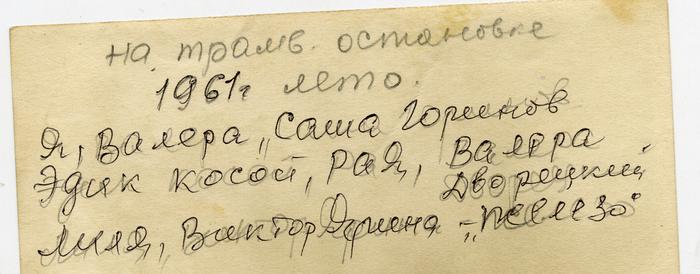 на трамв. остановке
1961г лето.
Я, Валера, Саша Горшнов
Эдик косой, Рая, Валера
Дворецкий
Лиля, Виктор Ярина - "железо"